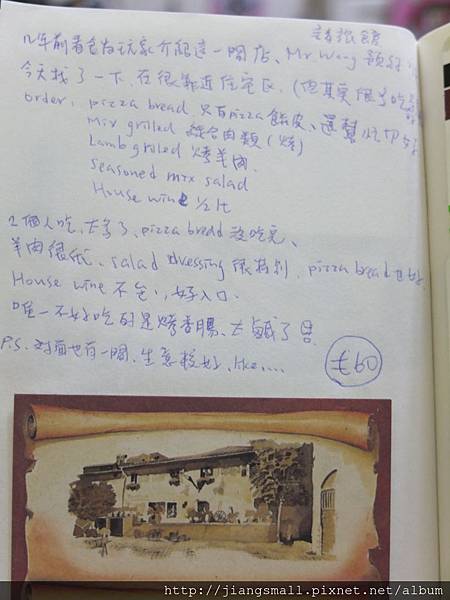 12年前看食尚玩家介紹這一間店、Mr. Wang 願
今天找了一下,在很靠近住宅區,(但其實很好吃
order: pizza bread 只有pizza餅皮、還幫忙切好
Mix grilled 綜合肉類(烤)
Lamb grilled 烤羊肉
seasoned mix salad
House wine 1/2 lt
2個人吃、太多了、pizza bread 沒吃完、
羊肉很低、salad dressing 很特別、pizza bread 也好
House wine 不色、好入口.
唯一不好吃的是烤香腸、太鹹了
P.S. 對面也有一間、生意較好、like....
€60
http://jiangsmall.pixnet.net/album